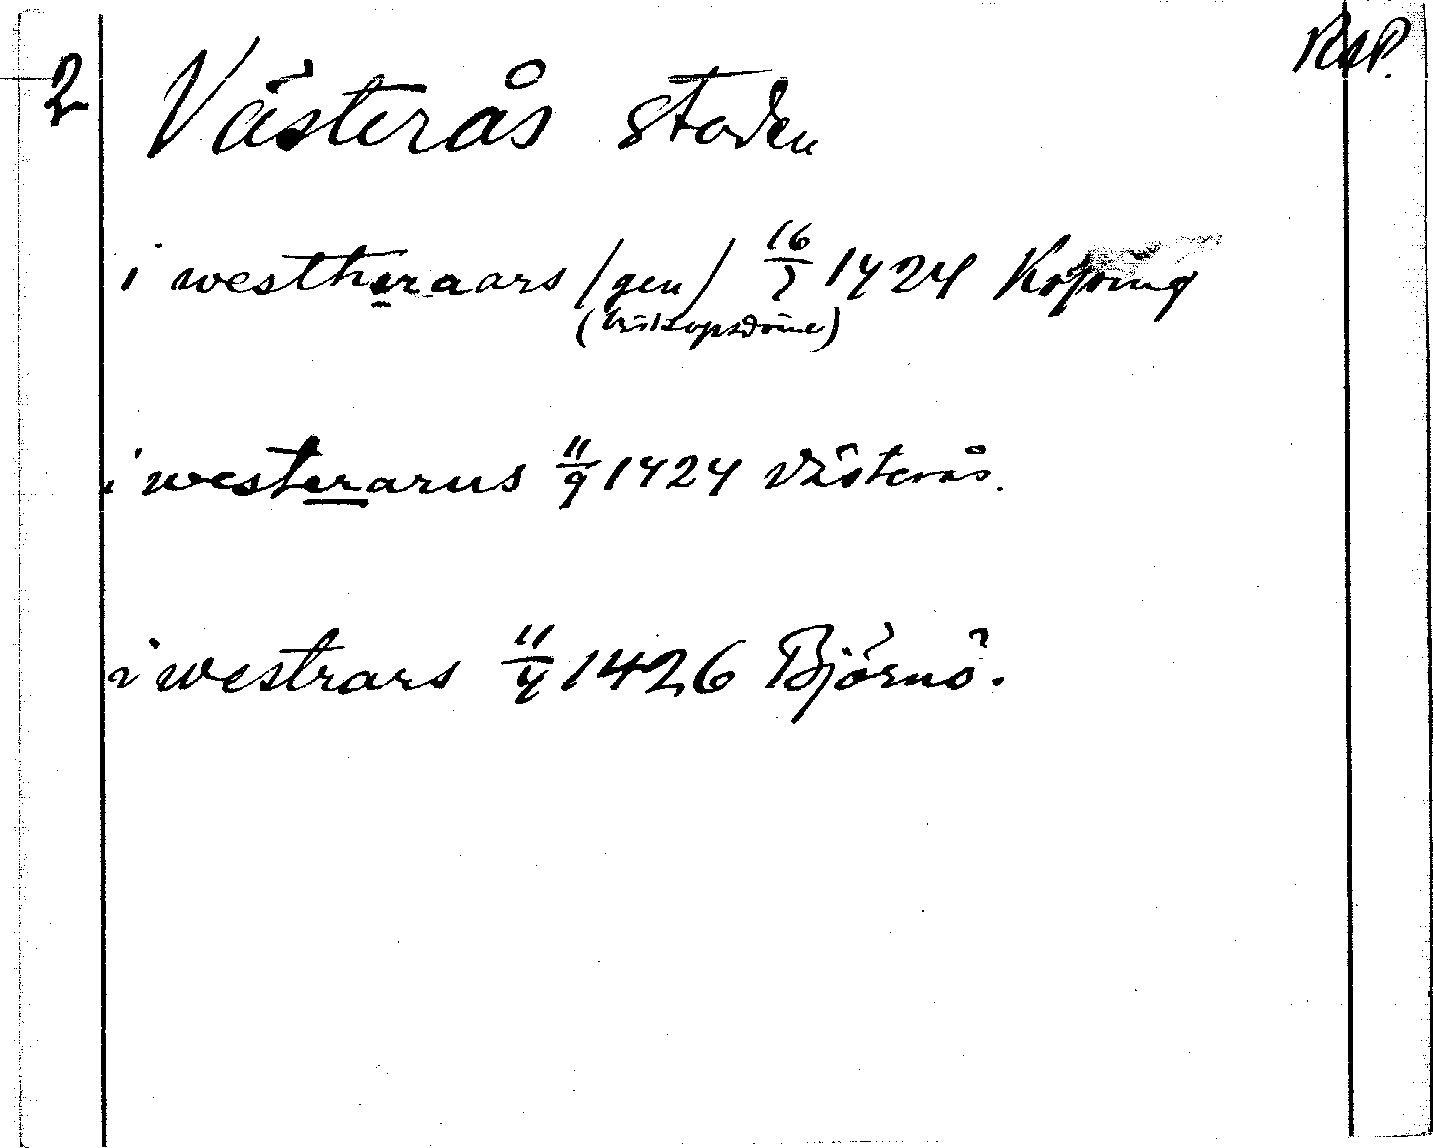 2 Västerås staden RAP.
i westheraars /gen/ 16/7 1424 Köping
(biskopsdöme)
i westerarus 11/9 1424 Västerås.
i westrars 11/4 1426 Björnö.